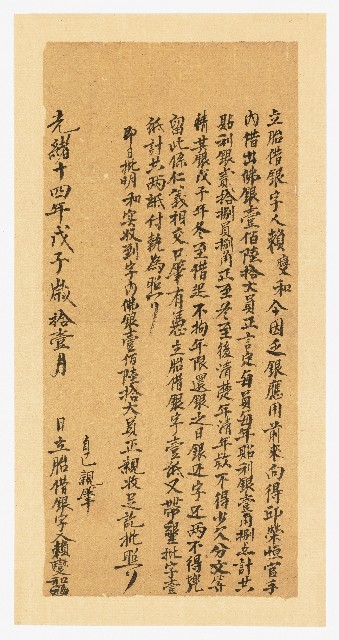 立胎借銀字人賴變和今因乏銀應用前來向得邱榮恒官手
內借出佛銀壹佰陸拾大員正言定每員每年貼利銀壹角捌点計共
貼利銀貳拾捌員捌角正至冬至後清楚年清年款不得少欠分文等
情其銀戊子年冬至借起不拘年限還銀之日銀还字还两不得
留此係仁義相交口筆有憑立胎借銀字壹紙又帶墾批字壹
紙計共两紙付執為炤
即日批明和实收到字內佛銀壹佰陸拾大員正親收足訖批炤
自己親筆
光緒十四年戊子歲拾壹月 日立胎借銀字人賴變和